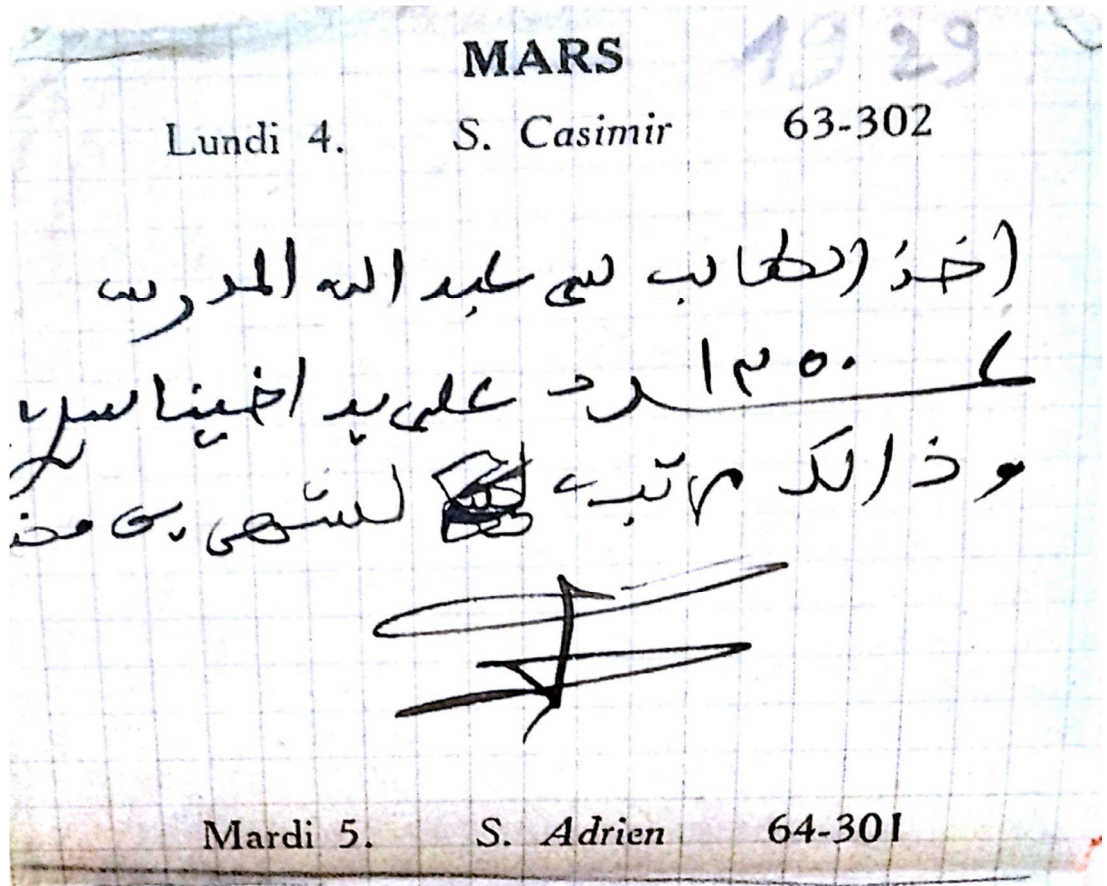 MARS 1929
Lundi 4. S. Casimir 63-302
اخذ الطالب سي عبد الله المدرس
١٣٥٠ على يد اخينا
وذالك مرتب لشهري
Mardi 5. S. Adrien 64-301